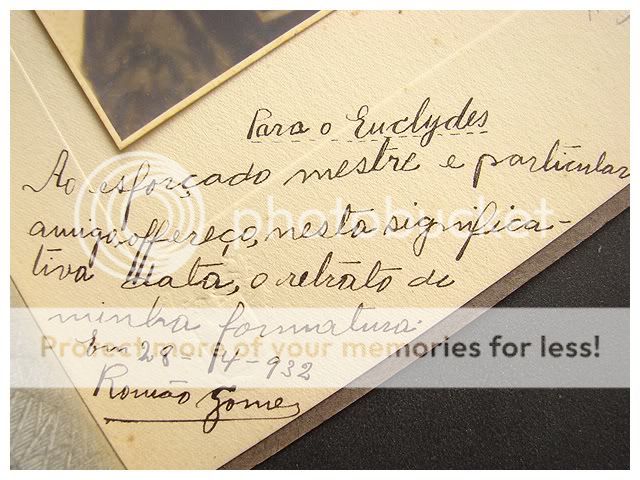 Para o Euclydes
Ao esforçado mestre e particular
amigo, offereço, nesta significa-
tiva data, o retrato de
minha formatura.
Em 28-14-932
Romão Gomes
photobucket
Protect more of your memories for less!